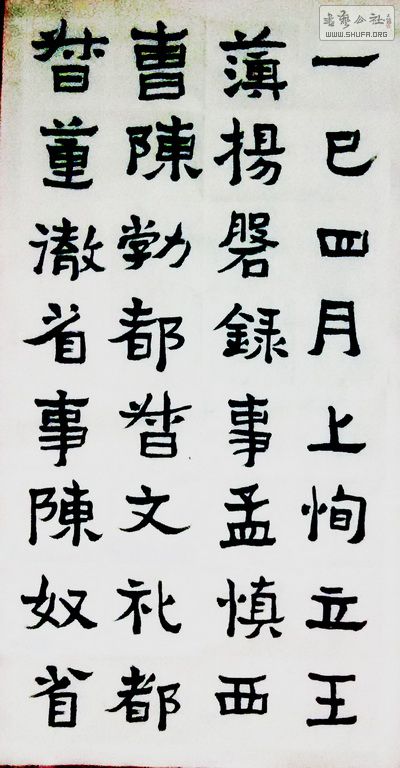 书艺公社
WWW.SHUFA.ORG
一巳四月上恂立王
薄揚磐録事孟慎西
曹陳勃都督文礼都
督董徹省事陳奴省